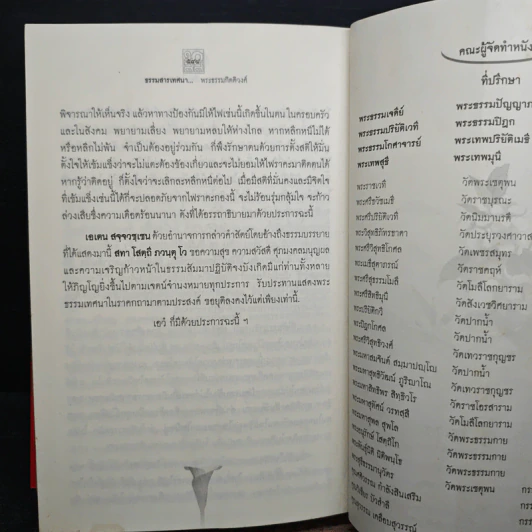 ๕๔๔
ธรรมสารเทศนา... พระธรรมกิตติวงศ์
พิจารณาให้เห็นจริง แล้วหาทางป้องกันมิให้ไฟเช่นนี้เกิดขึ้นในตน ในครอบครัว
และในสังคม พยายามเลี่ยง พยายามหลบให้ห่างไกล หากหลีกหนีไม่ได้
หรือหลีกไม่พ้น จำเป็นต้องอยู่ร่วมกัน ก็พึงรักษาตนด้วยการตั้งสติให้มั่น
ตั้งใจให้เข้มแข็งว่าจะไม่แตะต้องข้องเกี่ยวและจะไม่ยอมให้ไฟราคะมาติดตนได้
หากรู้ว่าติดอยู่ ก็ตั้งใจว่าจะเลิกละหลีกหนีต่อไป เมื่อมีสติที่มั่นคงและมีจิตใจ
ที่เข้มแข็งเช่นนี้ก็จะปลอดภัยจากไฟราคะกองนี้ จะไม่ร้อนรุ่มกลุ้มใจ จะก้าว
ล่วงเสียซึ่งความเดือดร้อนนานา ดังที่ได้อรรถาธิบายมาด้วยประการฉะนี้
เอเตน สจฺจวชฺเชน ด้วยอำนาจการกล่าวคำสัตย์โดยอ้างถึงธรรมบรรยาย
ที่ได้แสดงมานี้ สทา โสตฺถิ ภวนฺตุ โว ขอความสุข ความสวัสดี ศุภมงคลมนุญผล
และความเจริญก้าวหน้าในธรรมสัมมาปฏิบัติจงบังเกิดมีแก่ท่านทั้งหลาย
ให้ภิญโญยิ่งขึ้นไปตามเจตน์จำนงหมายทุกประการ รับประทานแสดงพระ
ธรรมเทศนาในราคกถามาตามประสงค์ ขอยุติลงคงไว้แต่เพียงเท่านี้.
เอวํ ก็มีด้วยประการฉะนี้ ฯ
คณะผู้จัดทำหนัง
ที่ปรึกษา
พระธรรมเจดีย์ พระธรรมปัญญาภ
พระธรรมปริยัติเวที พระธรรมปิฎก
พระธรรมโกศาจารย์ พระเทพปริยัติเมธี
พระเทพสุธี พระเทพมุนี
พระราชเวที วัดพระเชตุพน
พระศรีวัชิรเมธี วัดราชบุรณะ
พระศรีปริยัติเวที วัดนิมมานรดี
พระวิสุทธิภัทรธาดา วัดประยุรวงศาวาส
พระศรีวิสุทธิโกศล วัดเพชรสมุทร
พระเมธีสุตาภรณ์ วัดราชคฤห์
พระศรีธรรมโมลี วัดโมลีโลกยาราม
พระศรีสิทธิมุนี วัดสังเวชวิศยาราม
พระปริยัติกวี วัดปากน้ำ
พระปิฎกโกศล วัดปากน้ำ
พระศรีวิสุทธิวงศ์ วัดเทวราชกุญชร
พระมหาสมชินต์ สมฺมาปญฺโญ วัดปากน้ำ
พระมหาสุทธิวัฒน์ ภูริฌาโณ วัดเทวราชกุญชร
พระมหาสิทธิพร สิทฺธิวโร วัดราชโอรสาราม
พระมหาสุทัศน์ วรทสฺสี วัดโมลีโลกยาราม
พระมหาสุพล สุพโล วัดพระธรรมกาย
โสตฺถิโก วัดพระธรรมกาย
ฐิติพนฺโธ วัดพระธรรมกาย
วัดพระเชตุพน
กำลังสินเสริม
บัวฮ่าสี
เคลือบสุวรรณ์